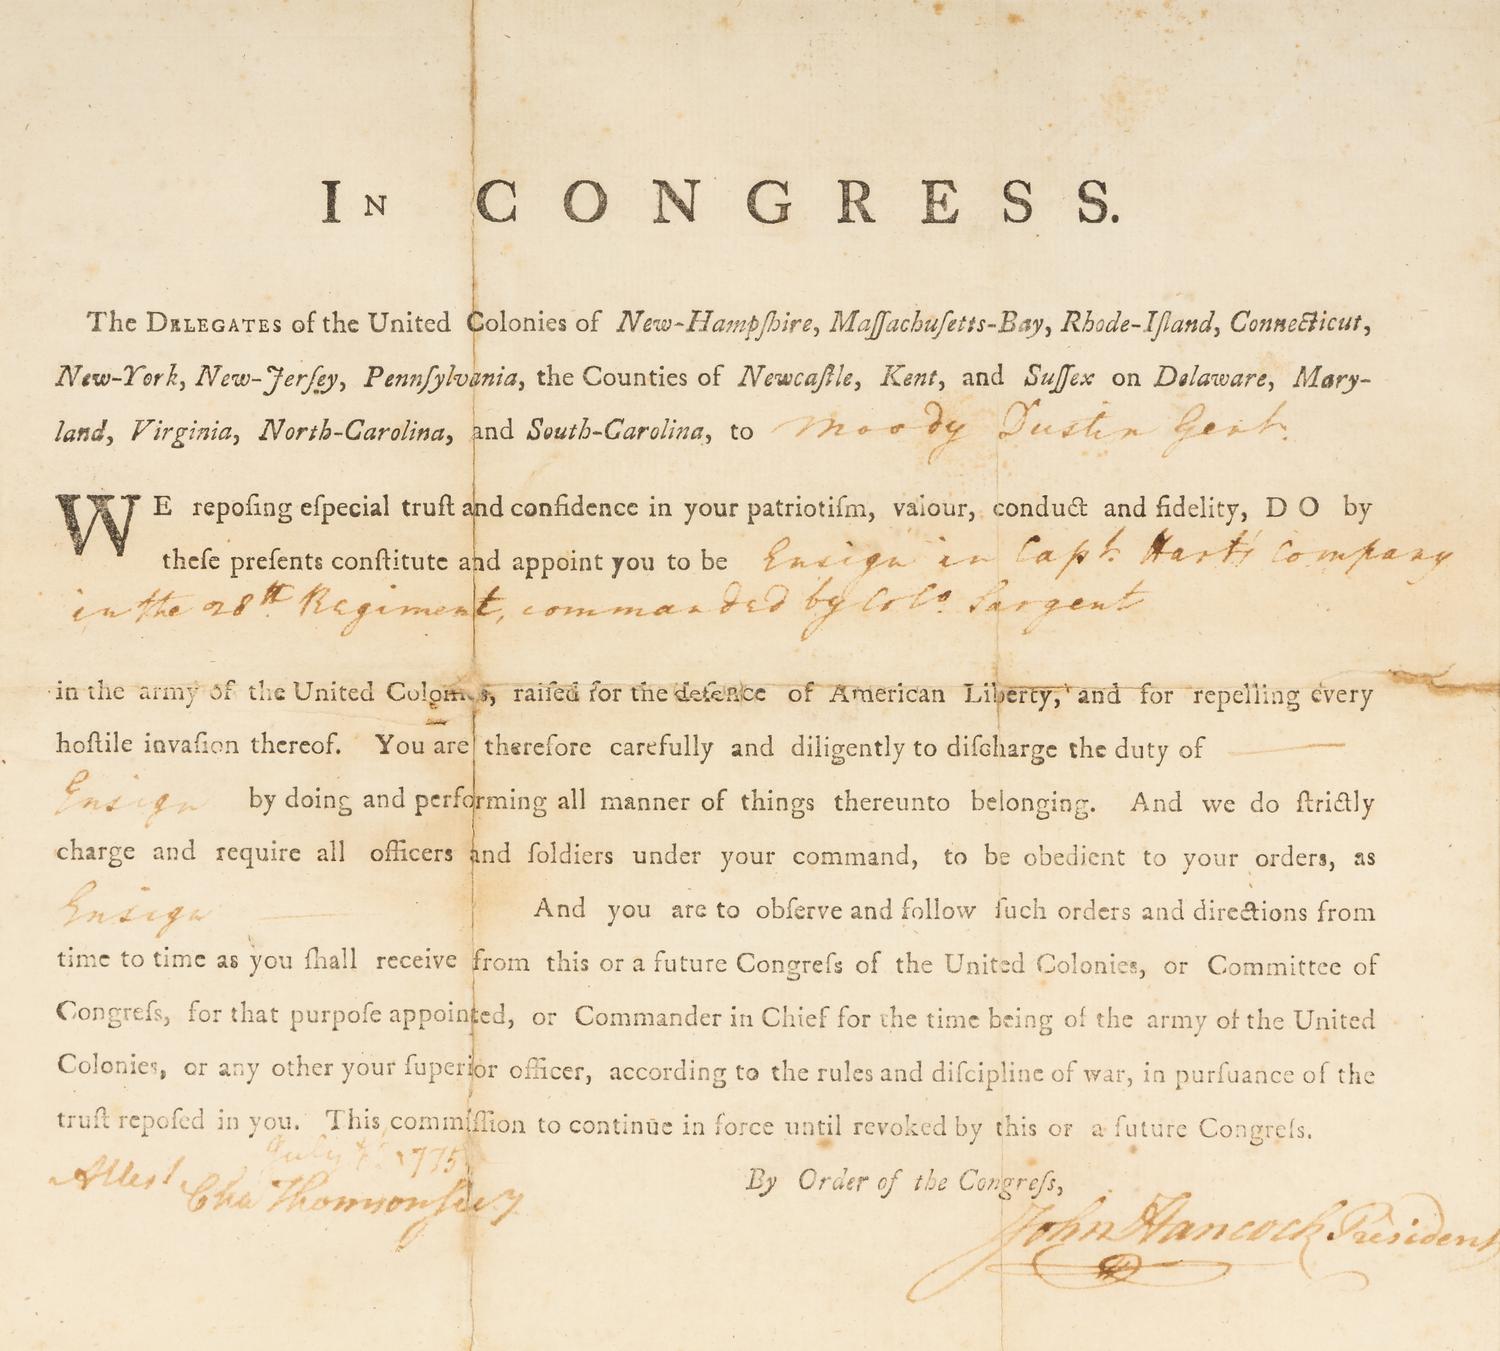 In CONGRESS.
The DELEGATES of the United Colonies of New-Hampſhire, Maſſachuſetts-Bay, Rhode-Iſland, Connecticut,
New-York, New-Jerſey, Pennſylvania, the Counties of Newcaſtle, Kent, and Suſſex on Delaware, Mary-
land, Virginia, North-Carolina, and South-Carolina, to Moody Dustin Gent.
WE repoſing eſpecial truſt and confidence in your patriotiſm, valour, conduct and fidelity, DO by
theſe preſents conſtitute and appoint you to be Ensign in Capt. Hart's Company
in the 28th Regiment, commanded by Colo. Sargent
in the army of the United Colonies, raiſed for the defence of American Liberty, and for repelling every
hoſtile invaſion thereof. You are therefore carefully and diligently to diſcharge the duty of
Ensign by doing and performing all manner of things thereunto belonging. And we do ſtrictly
charge and require all officers and ſoldiers under your command, to be obedient to your orders, as
Ensign And you are to obſerve and follow ſuch orders and directions from
time to time as you ſhall receive from this or a future Congreſs of the United Colonies, or Committee of
Congreſs, for that purpoſe appointed, or Commander in Chief for the time being of the army of the United
Colonies, or any other your ſuperior officer, according to the rules and diſcipline of war, in purſuance of the
truſt repoſed in you. This commiſſion to continue in force until revoked by this or a future Congreſs.
July 1775
By Order of the Congreſs,
Attest Cha Thomson Secy
John Hancock President